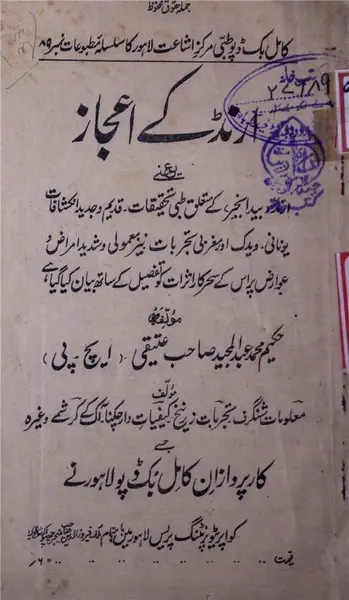 جملہ حقوق محفوظ
کامل بک ڈپو طبی مرکز اشاعت لاہور کا سلسلہ مطبوعات نمبر ۸۹
ارنڈ کے اعجاز
یعنی
ارنڈ (بید انجیر) کے متعلق طبی تحقیقات۔ قدیم و جدید انکشافات
یونانی۔ ویدک اور مغربی تجربات نیز معمولی و شدید امراض و
عوارض پر اس کے سحر کار اثرات کو تفصیل کے ساتھ بیان کیا گیا ہے
مؤلفہ
حکیم محمد عبد المجید صاحب عتیقی (ایچ۔ پی)
مؤلف
معلومات شنگرف، تجربات زرنیخ، کیفیات دار چکنا، آک کے کرشمے وغیرہ
جسے
کار پردازان کامل بک ڈپو لاہور نے
کواپریٹو پرنٹنگ پریس لاہور میں باہتمام
قیمت ۶؍